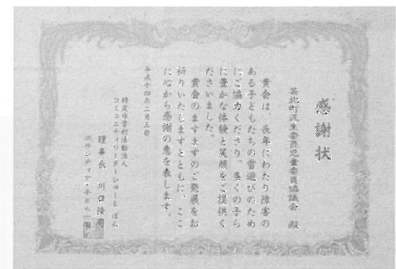 感謝状
苫北町民生委員児童委員協議会 殿
貴会は、長年にわたり障害の
ある子どもたちの雪遊びのため
にご協力くださり、多くの子ら
に豊かな体験と笑顔をご提供く
ださいました。
貴会のますますのご発展をお
祈りいたしますとともに、ここ
に心から感謝の意を表します。
平成十四年二月五日
特定非営利活動法人
理事長 川口